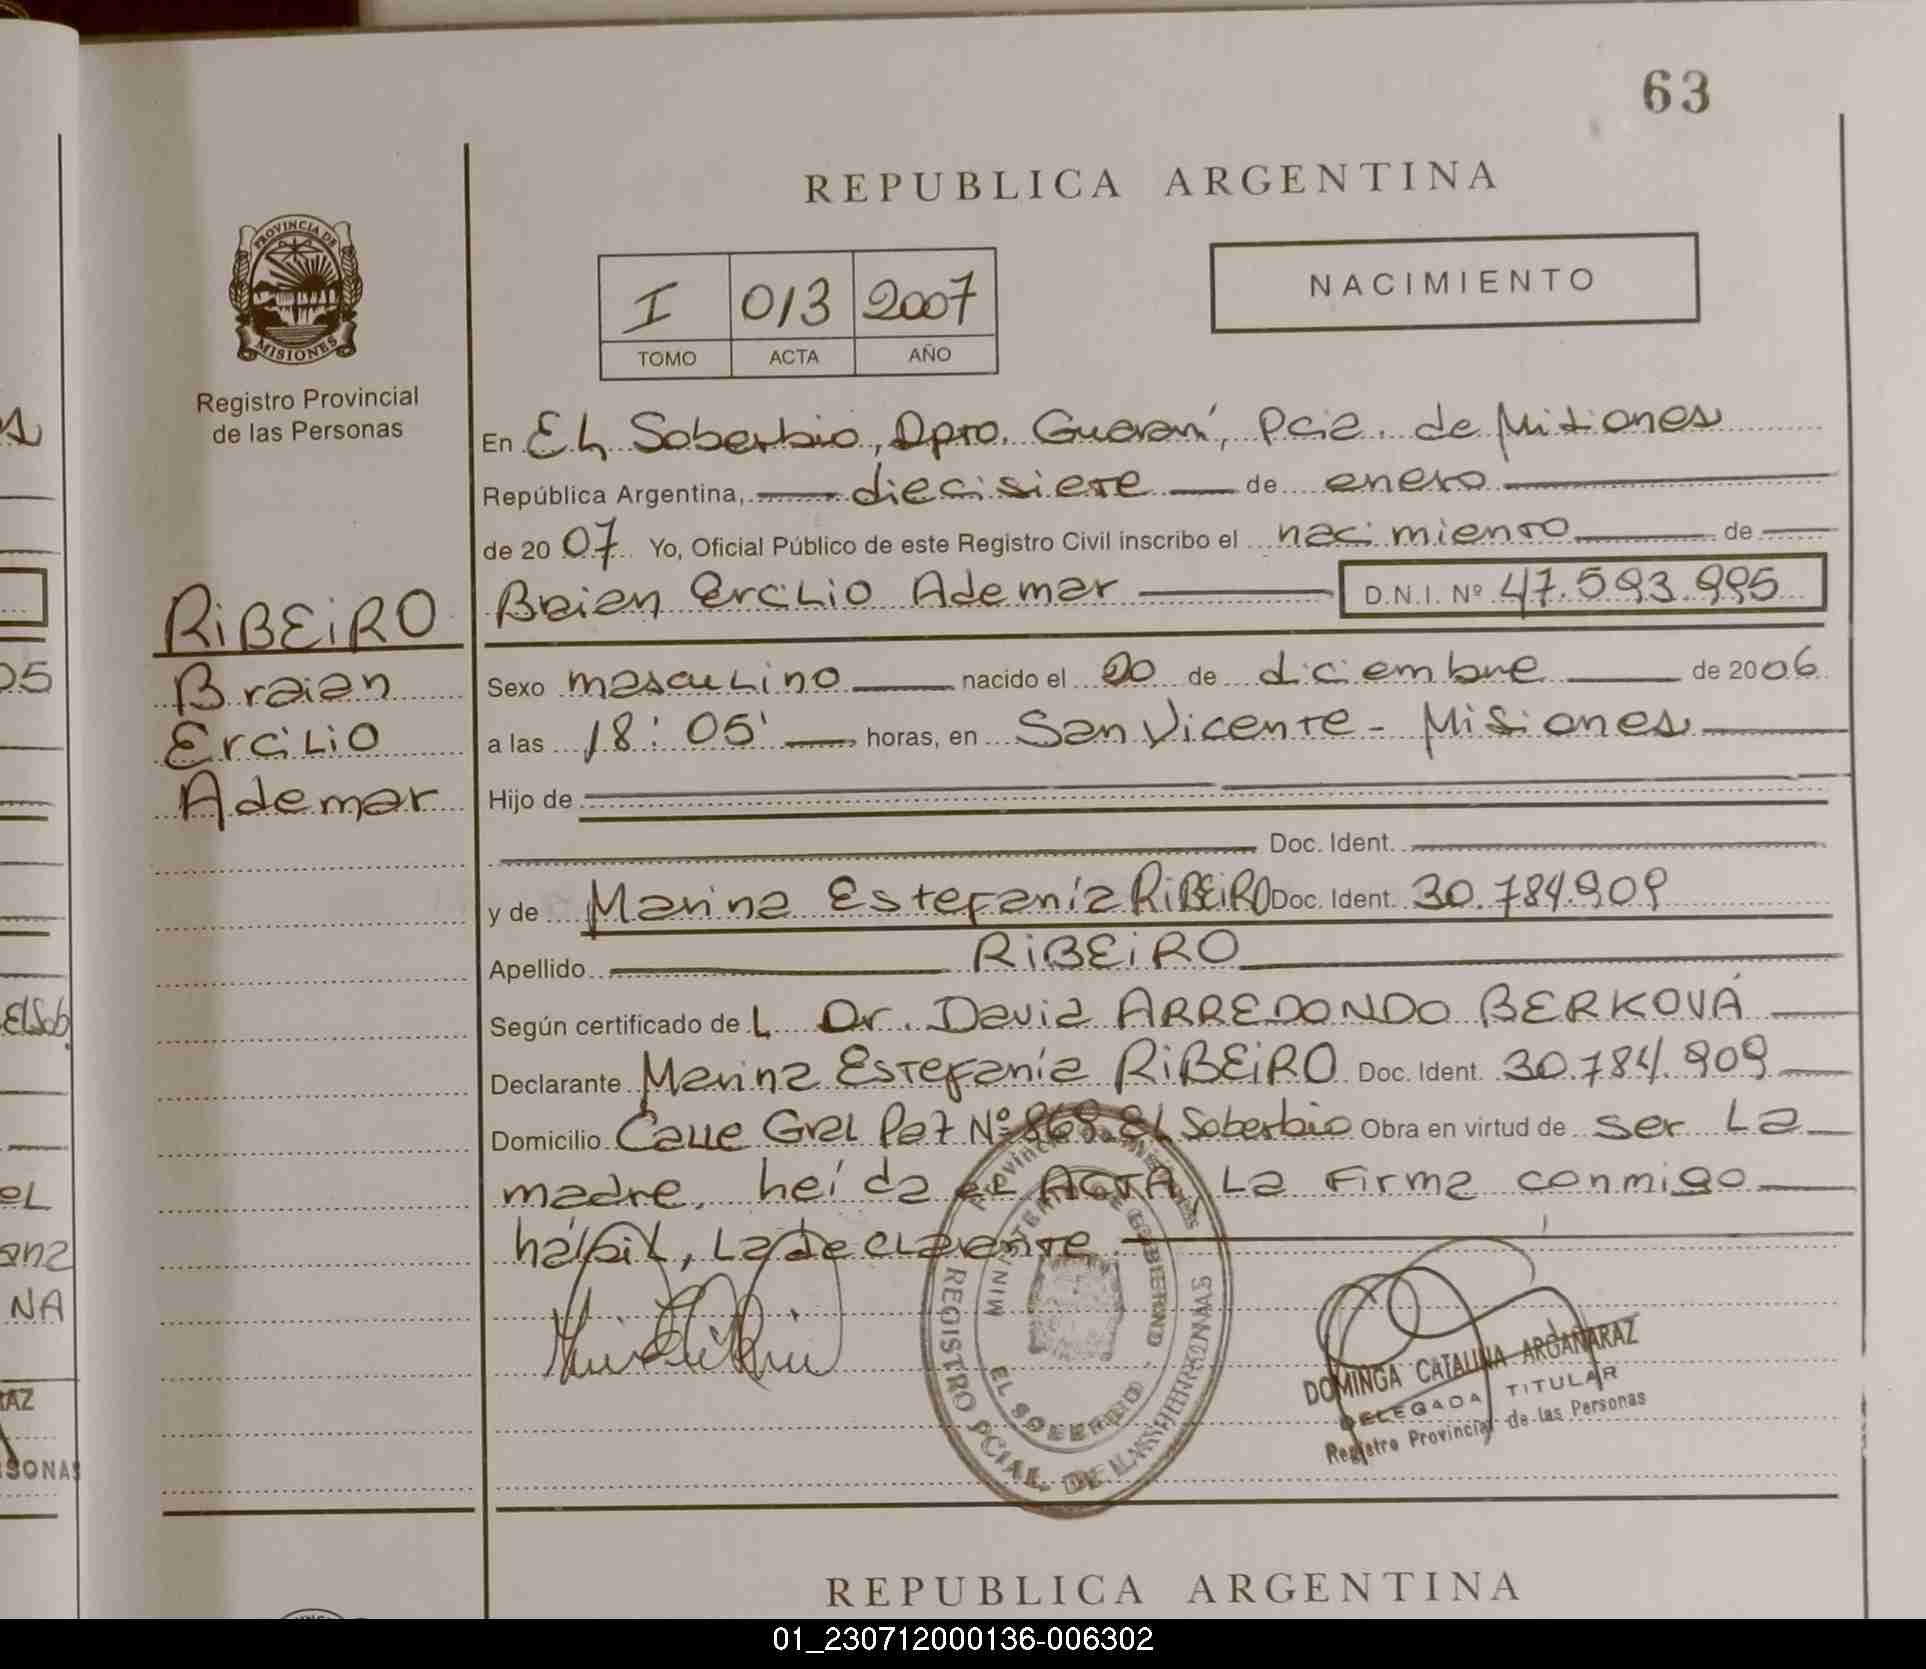 63
REPUBLICA ARGENTINA
PROVINCIA DE
MISIONES
Registro Provincial
de las Personas
NACIMIENTO
I 013 2007
TOMO ACTA AÑO
En El Soberbio, Dpto. Guaraní, Pcia. de Misiones
República Argentina, diecisiete de enero
de 2007 Yo, Oficial Público de este Registro Civil inscribo el nacimiento de
Braian Ercilio Ademar D.N.I. Nº 47.593.995
RIBEIRO
Braian
Ercilio
Ademar
Sexo masculino nacido el 20 de diciembre de 2006
a las 18:05' horas, en San Vicente - Misiones
Hijo de
Doc. Ident.
y de Marina Estefanía RIBEIRO Doc. Ident. 30.784.909
Apellido RIBEIRO
Según certificado del Dr. David ARREDONDO BERKOVÁ
Declarante Marina Estefanía RIBEIRO Doc. Ident. 30.784.909
Domicilio Calle Gral Paz Nº 868 El Soberbio Obra en virtud de ser la
madre, heí da el ACTA, la firma conmigo
hábil, la declarante.
Provincia de Misiones
MINISTERIO DE GOBIERNO
EL SOBERBIO
REGISTRO PCIAL. DE LAS PERSONAS
DOMINGA CATALINA ARGAÑARAZ
DELEGADA TITULAR
Registro Provincial de las Personas
REPUBLICA ARGENTINA
01_230712000136-006302